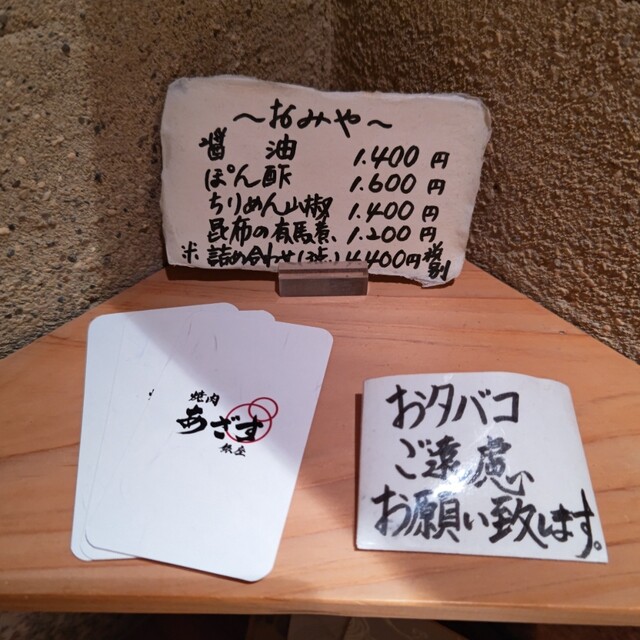 〜なみや〜
醤 油 1.400円
ぽん酢 1.600円
ちりめん山椒 1.400円
昆布の有馬煮 1.200円
※詰め合わせ 4.400円 税別
焼肉
あざす
銀座
おタバコ
ご遠慮
お願い致します。